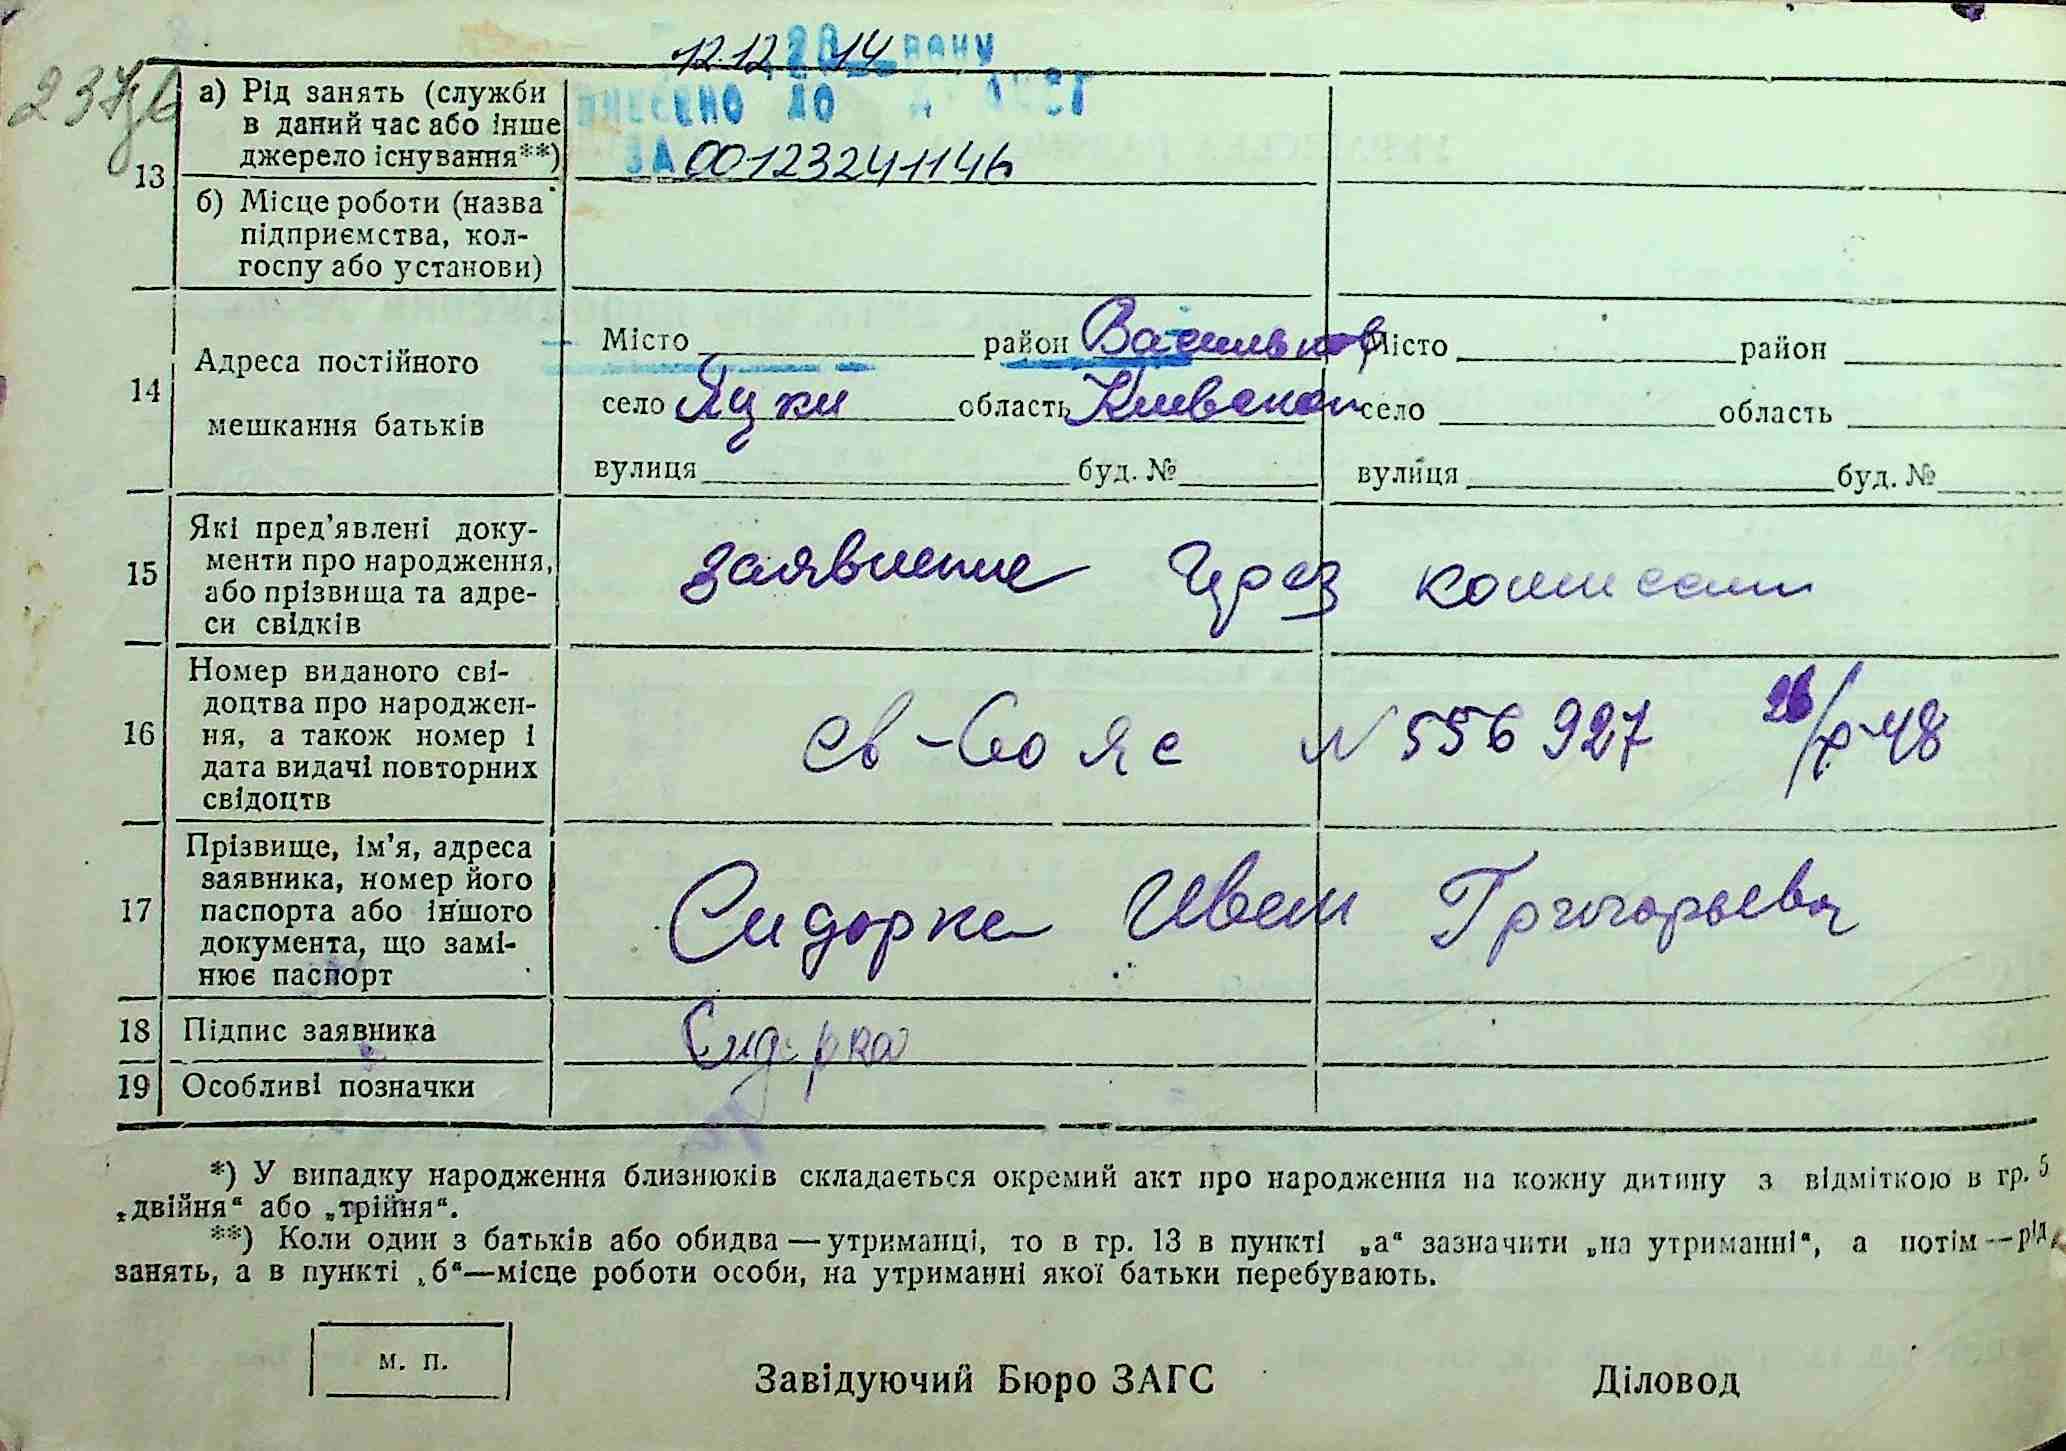 12.12 2014 року
ВНЕСЕНО ДО
ЗА 00123241146
237
13
а) Рід занять (служби
в даний час або інше
джерело існування**)
б) Місце роботи (назва
підприємства, кол-
госпу або установи)
14
Адреса постійного
мешкання батьків
Місто район Васильков Місто район
село Яцки область Киевской село область
вулиця буд. № вулиця буд. №
15
Які пред’явлені доку-
менти про народження,
або прізвища та адре-
си свідків
заявление через комиссии
16
Номер виданого сві-
доцтва про народжен-
ня, а також номер і
дата видачі повторних
свідоцтв
св-во яс N 556927 26/X-48
17
Прізвище, ім’я, адреса
заявника, номер його
паспорта або іншого
документа, що замі-
нює паспорт
Сидорка Иван Григорьевич
18 Підпис заявника Сидорка
19 Особливі позначки
*) У випадку народження близнюків складається окремий акт про народження на кожну дитину з відміткою в гр. 5
„двійня“ або „трійня“.
**) Коли один з батьків або обидва—утриманці, то в гр. 13 в пункті „а“ зазначити „на утриманні“, а потім—рід
занять, а в пункті „б“—місце роботи особи, на утриманні якої батьки перебувають.
м. п.
Завідуючий Бюро ЗАГС Діловод